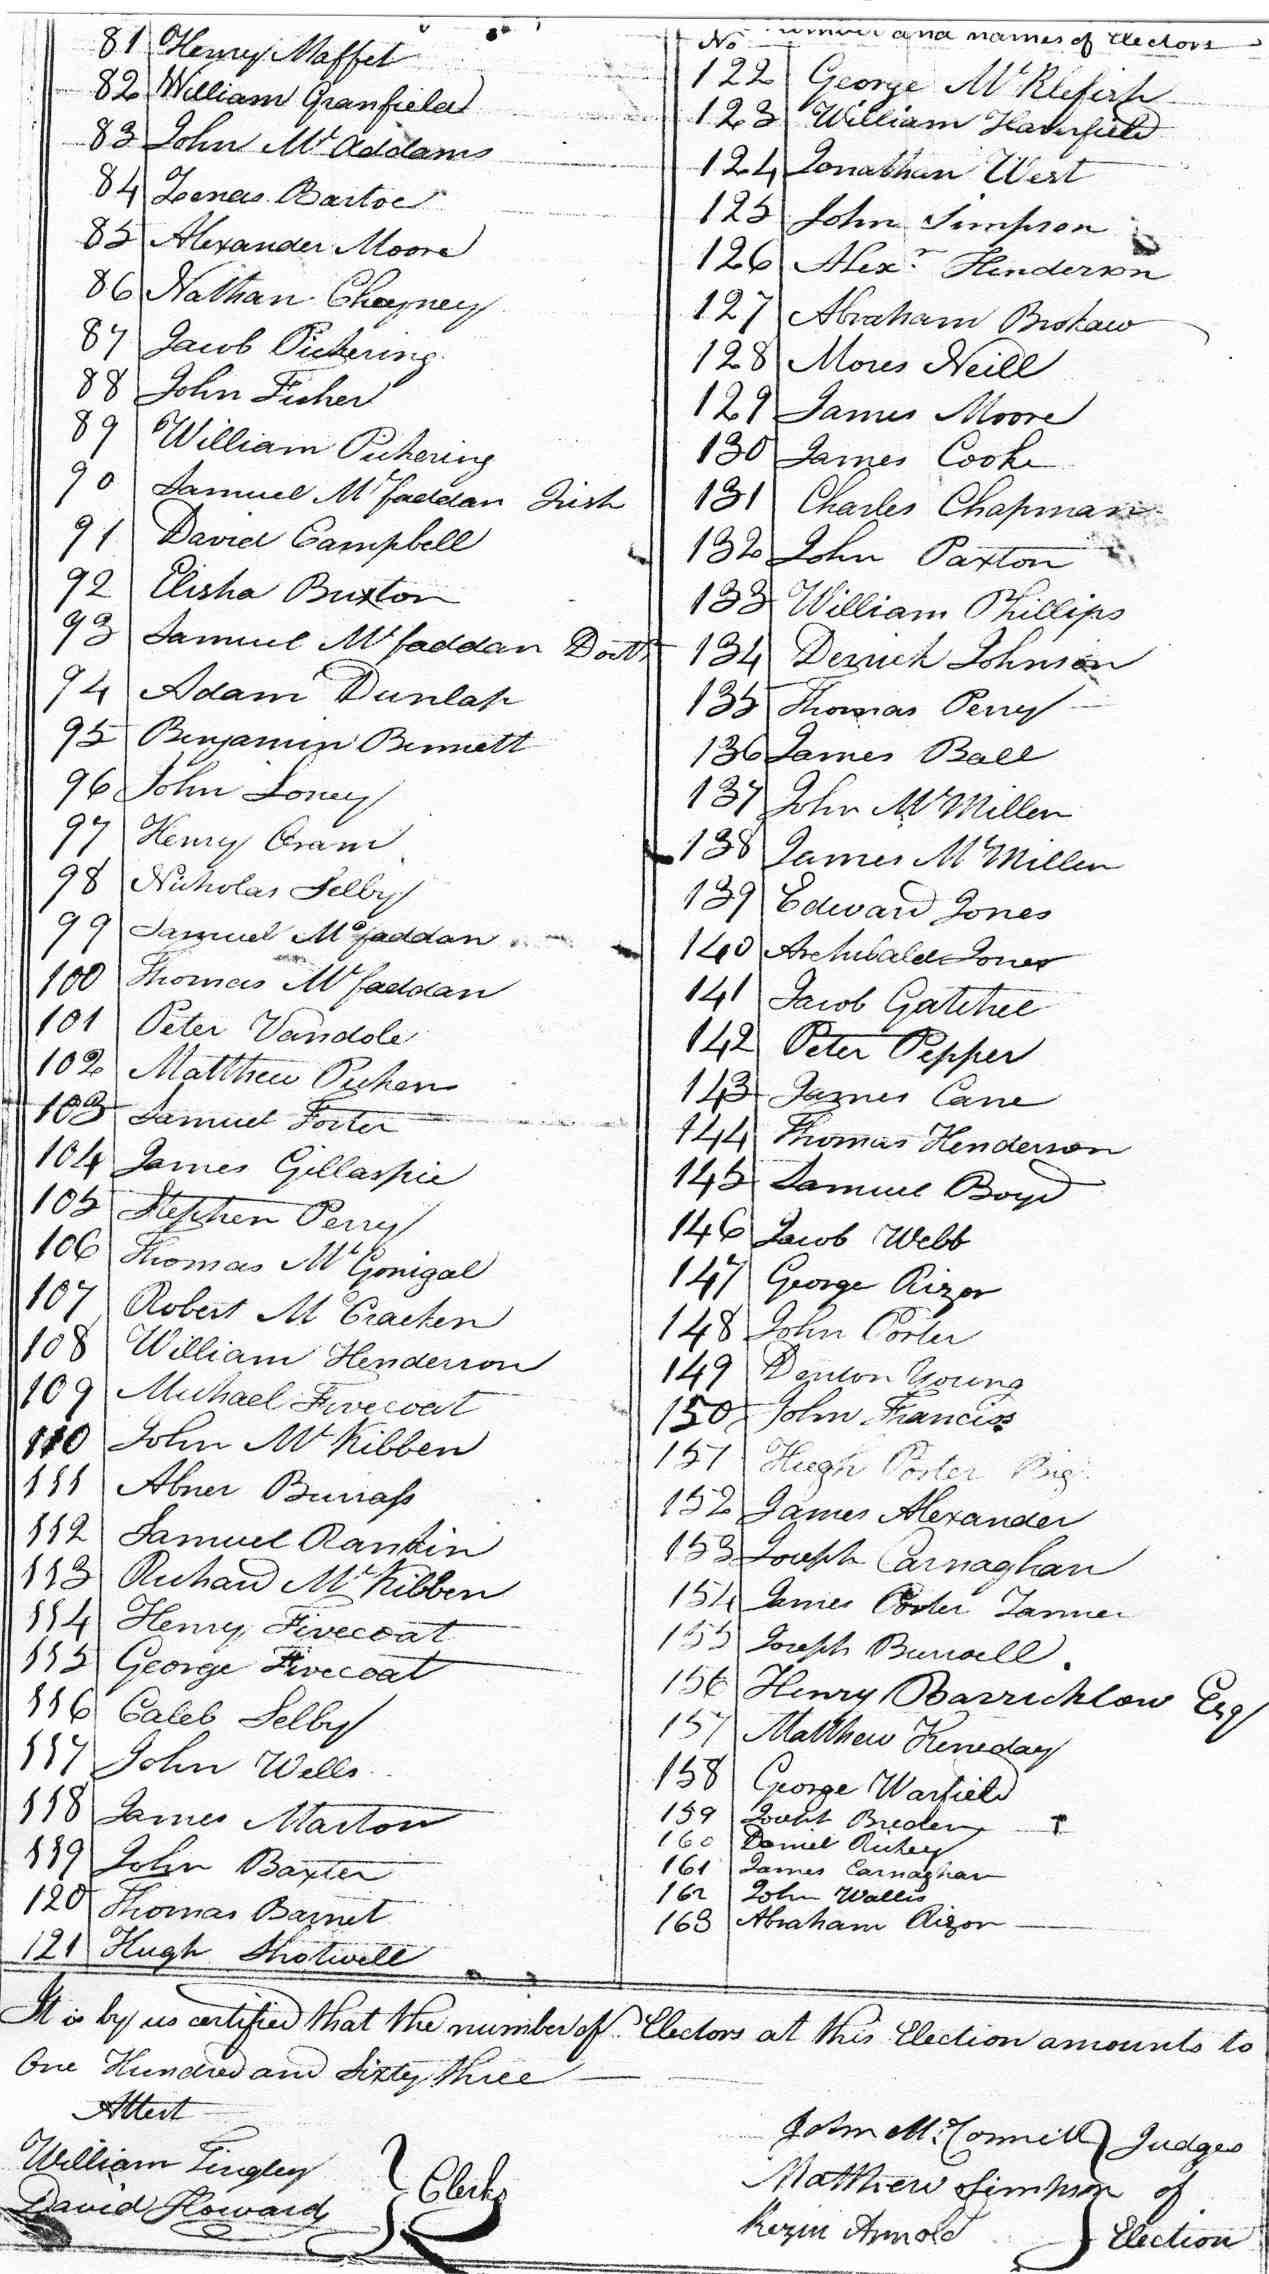 81 Henry Maffet
82 William Granfield
83 John McAddams
84 Zenas Bartoe
85 Alexander Moore
86 Nathan Cheyney
87 Jacob Pickering
88 John Fisher
89 William Pickering
90 Samuel Mcfaddan Irish
91 David Campbell
92 Elisha Buxton
93 Samuel Mcfaddan Doctr
94 Adam Dunlap
95 Benjamin Bennett
96 John Loney
97 Henry Oram
98 Nicholas Selby
99 Samuel Mcfaddan
100 Thomas Mcfaddan
101 Peter Vandole
102 Matthew Picken
103 Samuel Foster
104 James Gillaspie
105 Stephen Perry
106 Thomas McGonigal
107 Robert McCracken
108 William Henderson
109 Michael Fivecoat
110 John McKibben
111 Abner Burrass
112 Samuel Rankin
113 Richard McKibben
114 Henry Fivecoat
115 George Fivecoat
116 Caleb Selby
117 John Wells
118 James Marton
119 John Baxter
120 Thomas Barnet
121 Hugh Shotwell
No Number and names of Electors
122 George
123 William
124 Jonathan West
125 John Simpson
126 Alexr Henderson
127 Abraham Brokaw
128 Moses Neill
129 James Moore
130 James Cooke
131 Charles Chapman
132 John Paxton
133 William Phillips
134 Derrick Johnson
135 Thomas Perry
136 James Ball
137 John McMillen
138 James McMillen
139 Edward Jones
140 Archibald Jones
141 Jacob Gatchel
142 Peter Pepper
143 James Cane
144 Thomas Henderson
145 Samuel Boyd
146 Jacob Webb
147 George Rizor
148 John Porter
149 Denton Young
150 John Franciss
151 Hugh Porter Big
152 James Alexander
153 Joseph Carnaghan
154 James Porter Tanner
155 Joseph Burwell
156 Henry Barricklow Esq
157 Matthew Keneday
158 George Warfield
159 Joseph Breden
160 Daniel Richey
161 James Carnaghan
162 John Wallis
163 Abraham Rizor
It is by us certified that the number of Electors at this Election amounts to
One Hundred and Sixty three
Attest
William Tingley
David Howard
Clerks
John McConnell
Matthew Simpson
Rezin Arnold
Judges
of
Election